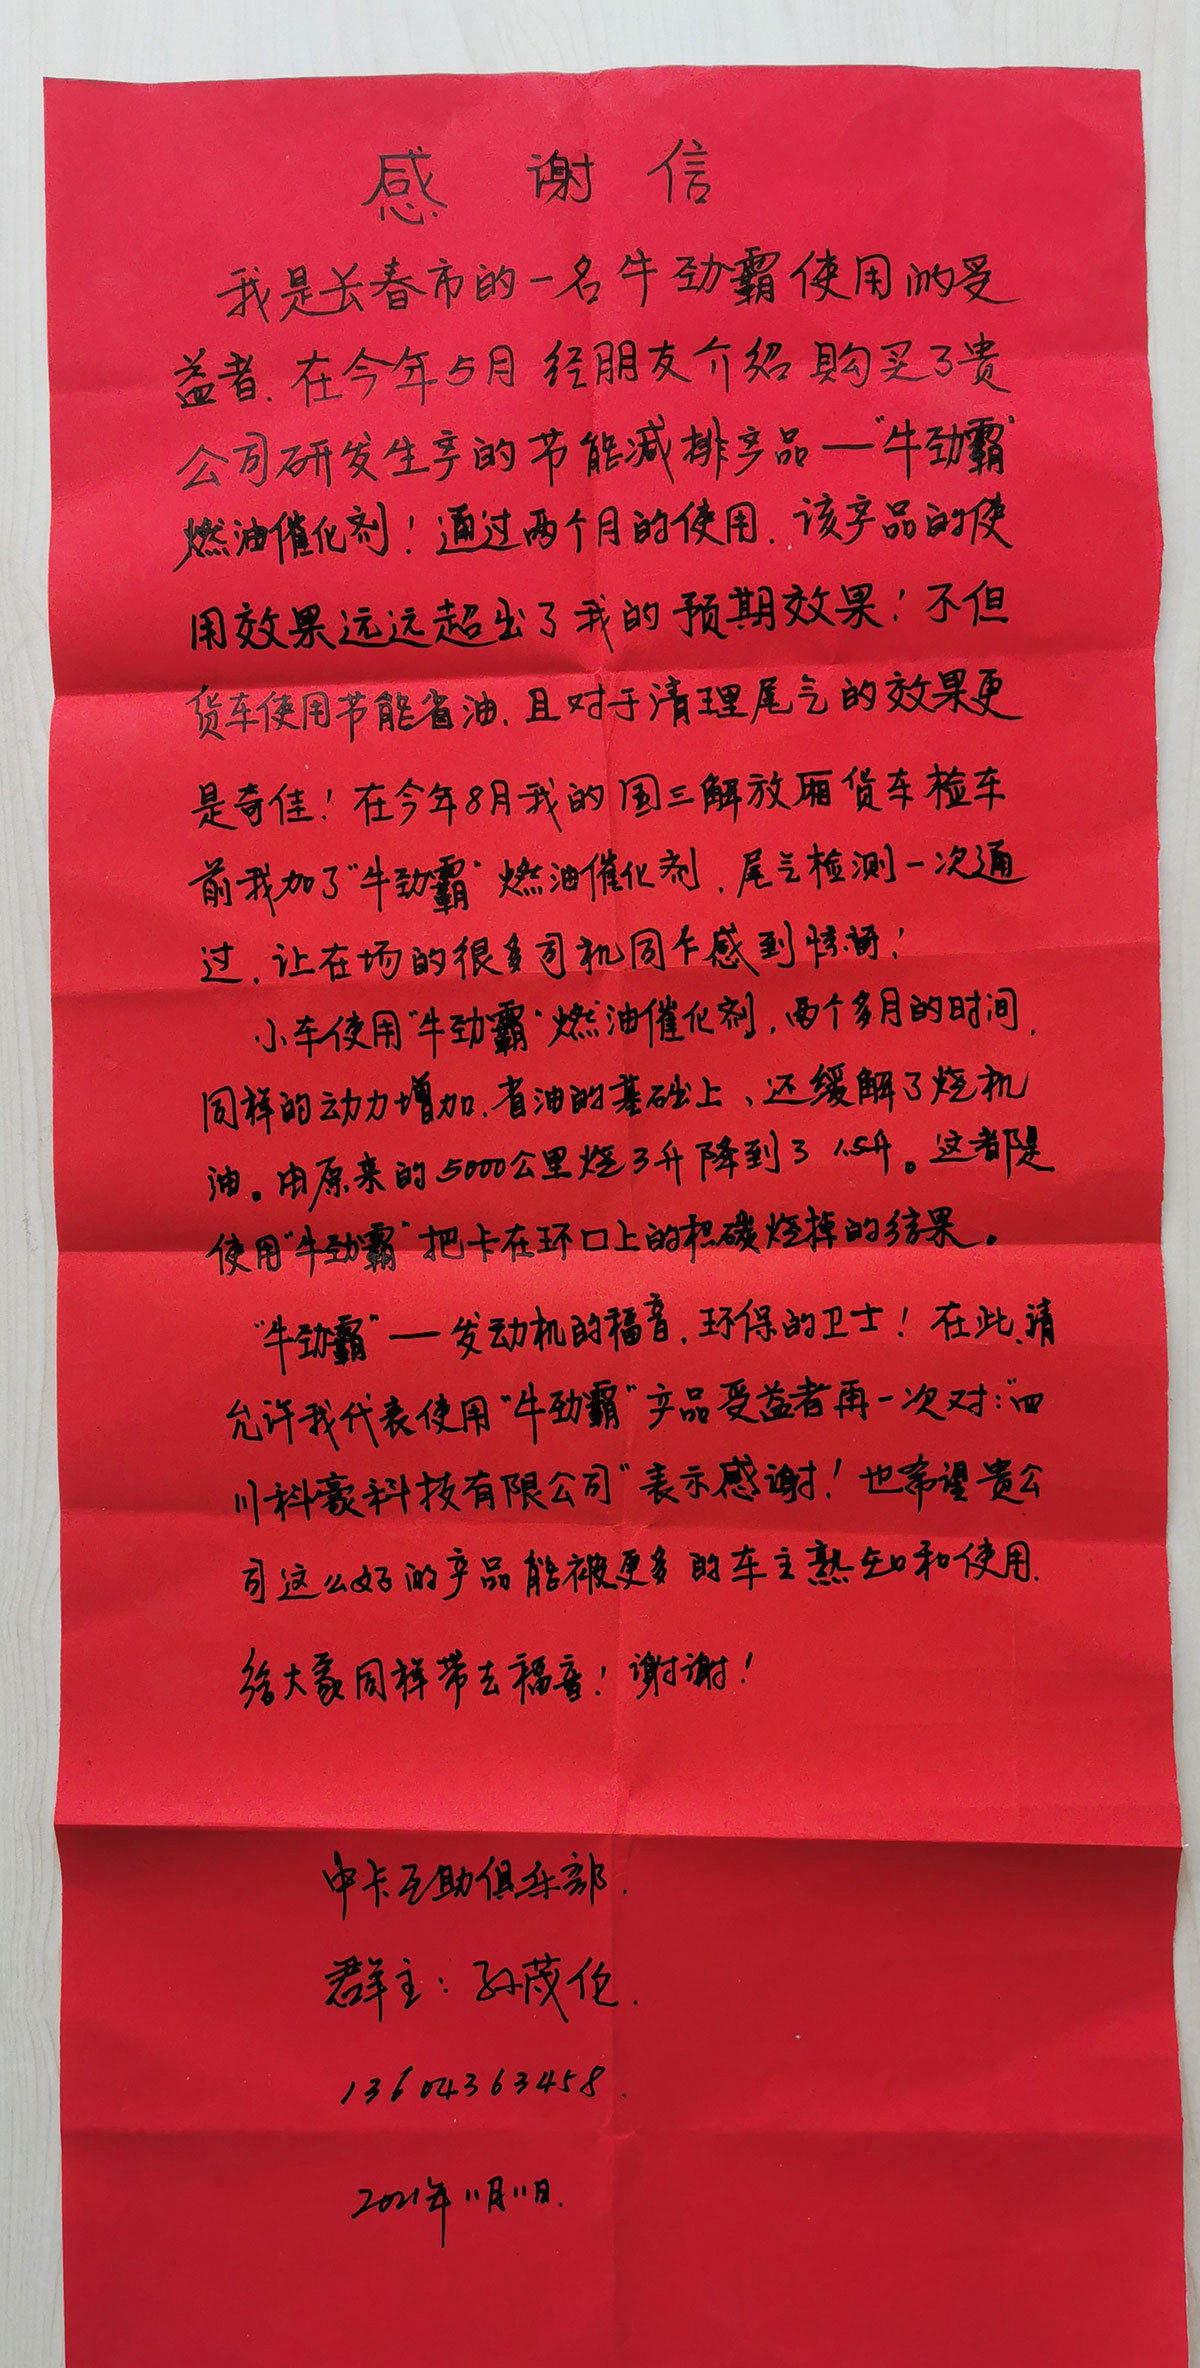 感谢信
我是长春市的一名牛劲霸使用的受
益者.在今年5月经朋友介绍购买了贵
公司研发生产的节能减排产品—“牛劲霸”
燃油催化剂！通过两个月的使用.该产品的使
用效果远远超出了我的预期效果！不但
货车使用节能省油.且对于清理尾气的效果更
是奇佳！在今年8月我的国三解放厢货车检车
前我加了“牛劲霸”燃油催化剂,尾气检测一次通
过,让在场的很多司机同卡感到惊讶！
小车使用“牛劲霸”燃油催化剂,两个多月的时间,
同样的动力增加、省油的基础上、还缓解了烧机
油。由原来的5000公里烧3升降到了1.5升。这都是
使用“牛劲霸”把卡在环口上的积碳烧掉的结果。
“牛劲霸”—发动机的福音.环保的卫士！在此、请
允许我代表使用“牛劲霸”产品受益者再一次对:“四
川科豪科技有限公司”表示感谢！也希望贵公
司这么好的产品能被更多的车主熟知和使用.
给大家同样带去福音！谢谢！
中卡互助俱乐部.
群主:孙茂伦.
13604363458.
2021年11月11日.